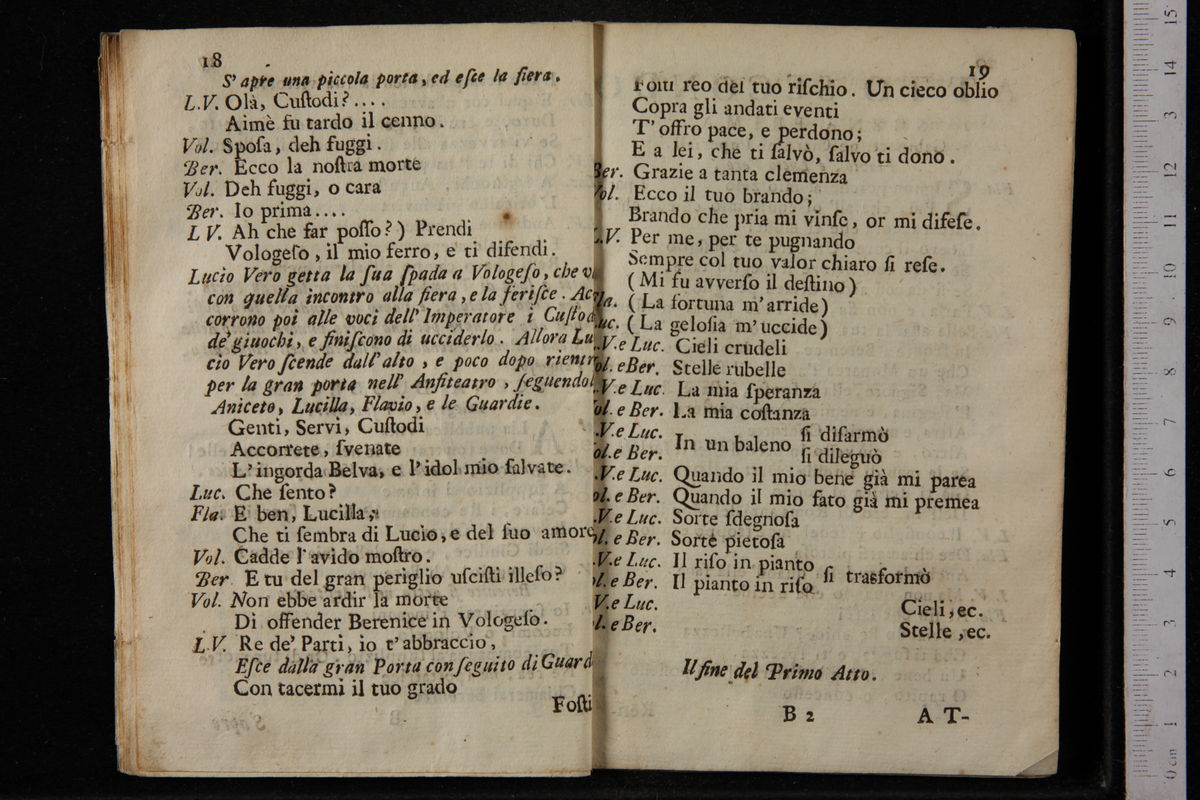 18
S' apre una piccola porta, ed eſce la fiera.
L.V. Olà, Cuſtodi?....
Aimè fu tardo il cenno.
Vol. Spoſa, deh fuggi.
Ber. Ecco la noſtra morte
Vol. Deh fuggi, o cara
Ber. Io prima....
L V. Ah che far poſſo?) Prendi
Vologeſo, il mio ferro, e ti difendi.
Lucio Vero getta la ſua ſpada a Vologeſo, che
con quella incontro alla fiera, e la feriſce. Ac
corrono poi alle voci dell' Imperatore i Cuſtod
de' giuochi, e finiſcono di ucciderlo. Allora Lu
cio Vero ſcende dall' alto, e poco dopo rientr
per la gran porta nell' Anfiteatro, ſeguendol
Aniceto, Lucilla, Flavio, e le Guardie.
Genti, Servi, Cuſtodi
Accorrete, ſvenate
L'ingorda Belva, e l'idol mio ſalvate.
Luc. Che ſento?
Fla. E ben, Lucilla,
Che ti ſembra di Lucio, e del ſuo amore
Vol. Cadde l'avido moſtro.
Ber. E tu del gran periglio uſciſti illeſo?
Vol. Non ebbe ardir la morte
Di offender Berenice in Vologeſo.
L.V. Re de' Parti, io t'abbraccio,
Eſce dalla gran Porta con ſeguito di Guard
Con tacermi il tuo grado
Foſti
19
Foſti reo del tuo riſchio. Un cieco oblio
Copra gli andati eventi
T' offro pace, e perdono;
E a lei, che ti ſalvò, ſalvo ti dono.
Ber. Grazie a tanta clemenza
Vol. Ecco il tuo brando;
Brando che pria mi vinſe, or mi difeſe.
L.V. Per me, per te pugnando
Sempre col tuo valor chiaro ſi reſe.
(Mi fu avverſo il deſtino)
la. (La fortuna m'arride)
uc. (La geloſia m'uccide)
.V. e Luc. Cieli crudeli
ol. e Ber. Stelle rubelle
.V. e Luc. La mia ſperanza
ol. e Ber. La mia coſtanza
.V. e Luc. In un baleno ſi diſarmò
ol. e Ber. ſi dileguò
.V. e Luc. Quando il mio bene già mi parea
ol. e Ber. Quando il mio fato già mi premea
.V. e Luc. Sorte ſdegnoſa
l. e Ber. Sorte pietoſa
.V. e Luc. Il riſo in pianto
ol. e Ber. Il pianto in riſo ſi trasformò
V. e Luc. Cieli, ec.
l. e Ber. Stelle, ec.
Il fine del Primo Atto.
B 2 A T-